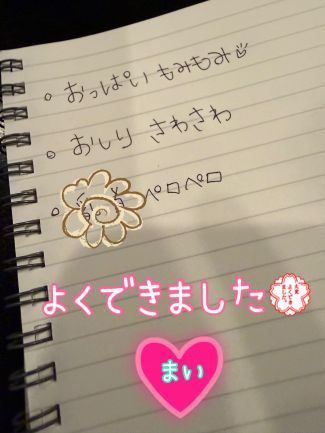 。おっぱい もみもみ
。おしり さわさわ
。ペロペロ
よくできました
まい